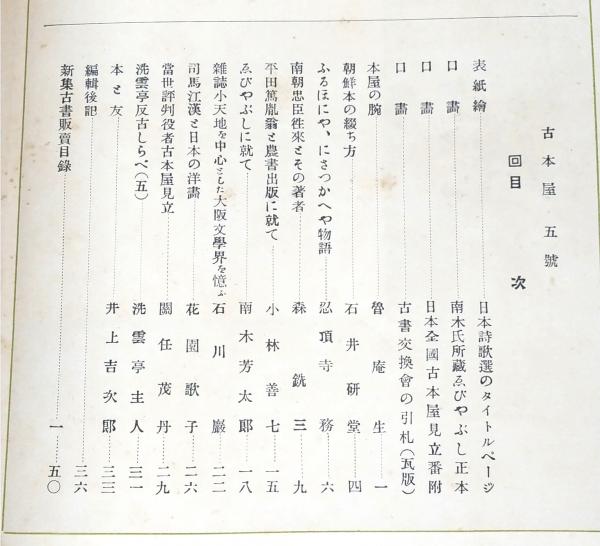 古本屋 五號
回目 次
表紙繪……日本詩歌選のタイトルページ
口畫……南木氏所藏ゑびやぶし正本
口畫……日本全國古本屋見立番附
口畫……古書交換會の引札(瓦版)
本屋の腕……魯庵生…一
朝鮮本の綴ち方……石井研堂…四
ふるほにや、にさつかへや物語……忍頂寺務…六
南朝忠臣徃來とその著者……森銑三…九
平田篤胤翁と農書出版に就て……小林善七…一五
ゑびやぶしに就て……南木芳太郎…一八
雜誌小天地を中心とした大阪文學界を憶ふ……石川巖…二二
司馬江漢と日本の洋畵……花園歌子…二六
當世評判役者古本屋見立……關任茂丹…二九
洗雲亭反古しらべ(五)……洗雲亭主人…三一
本と友……井上吉次郎…三三
編輯後記……三六
新集古書販賣目錄……一…五〇